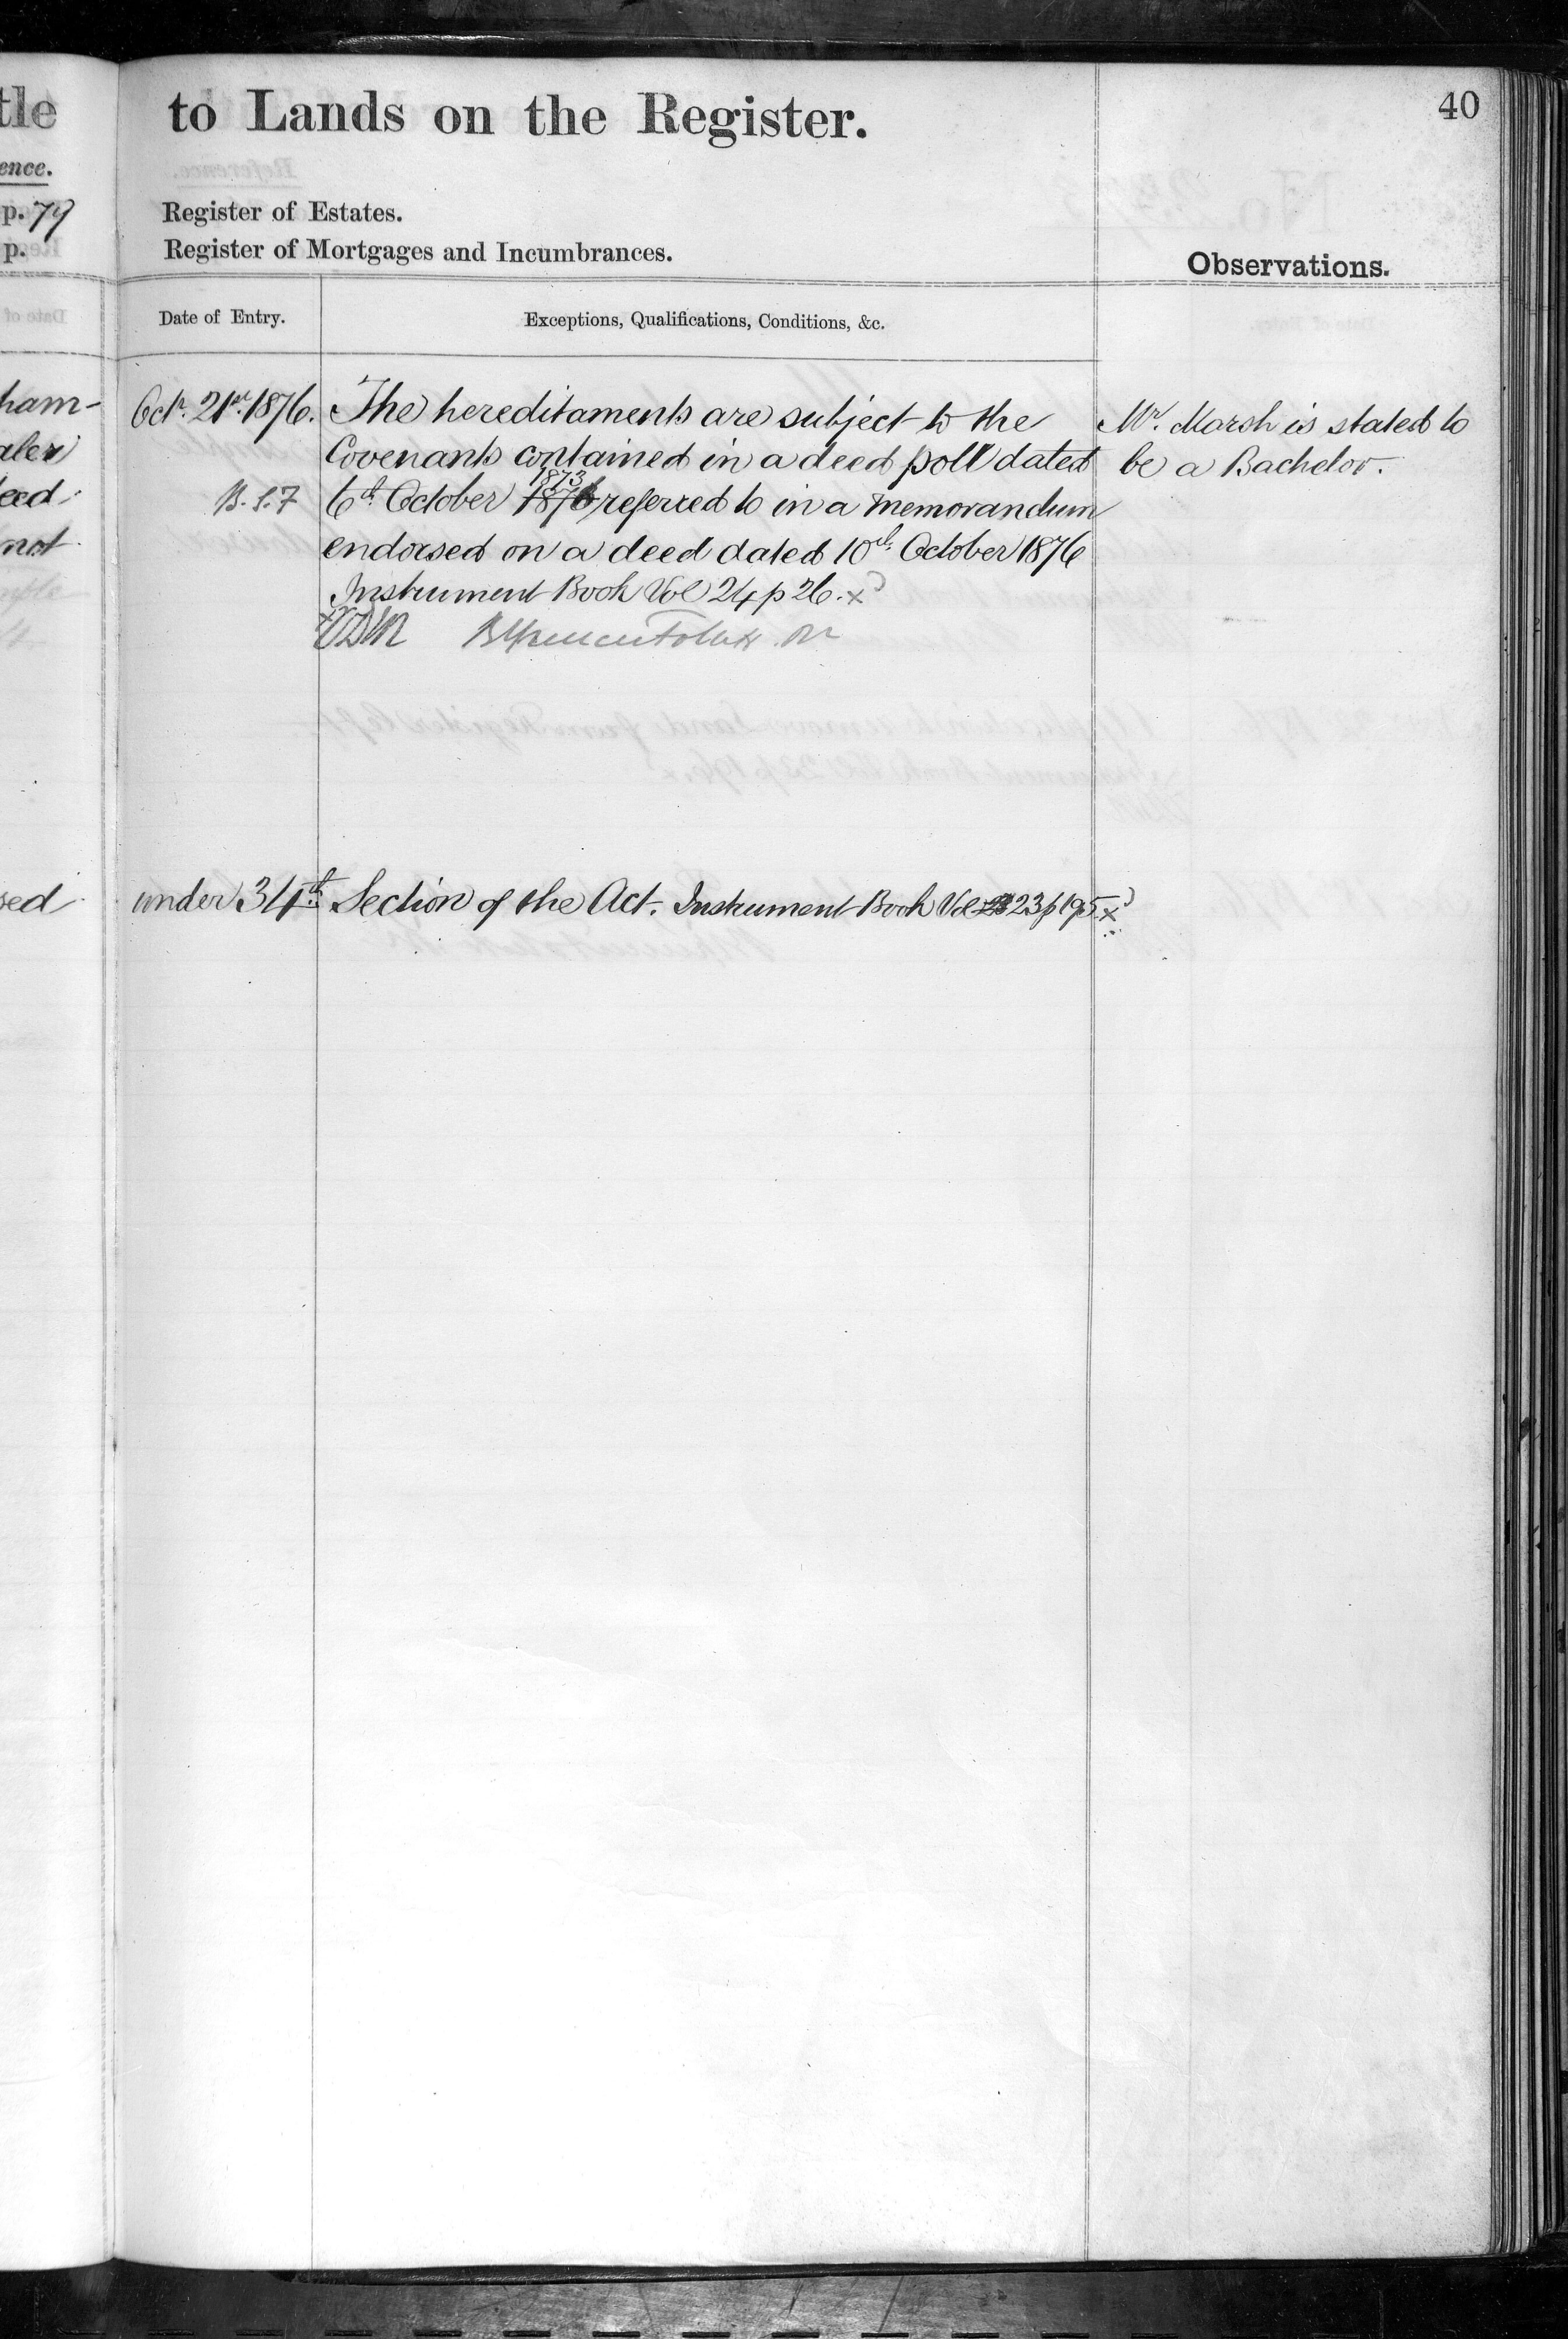 tle
ence.
p. 79
p.
ham-
aler
eed
not
sed
to Lands on the Register.
40
Register of Estates.
Register of Mortgages and Incumbrances.
Observations.
Date of Entry.
Exceptions, Qualifications, Conditions, &c.
Octr. 21st. 1876.
The hereditaments are subject to the
Covenants contained in a deed poll dated
1873
B.S.7
6th October 1876 referred to in a memorandum
endorsed on a deed dated 10th October 1876
Instrument Book Vol 24 p 26. x
Mr. Marsh is stated to
be a Bachelor.
under 34th Section of the Act. Instrument Book Vol 23 p 195 x